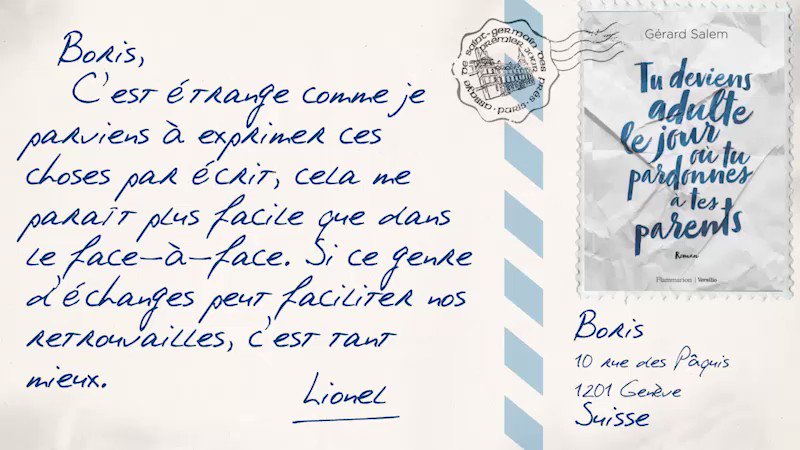 Boris,
C'est étrange comme je
parviens à exprimer ces
choses par écrit, cela me
paraît plus facile que dans
le face-à-face. Si ce genre
d'échanges peut faciliter nos
retrouvailles, c'est tant
mieux.
Lionel
ABBAYE DE SAINT-GERMAIN DES PRÉS PARIS
PREMIER JOUR
Gérard Salem
Tu deviens
adulte
le jour
où tu
pardonnes
à tes
parents
Roman
Flammarion | Versilio
Boris
10 rue des Pâquis
1201 Genève
Suisse